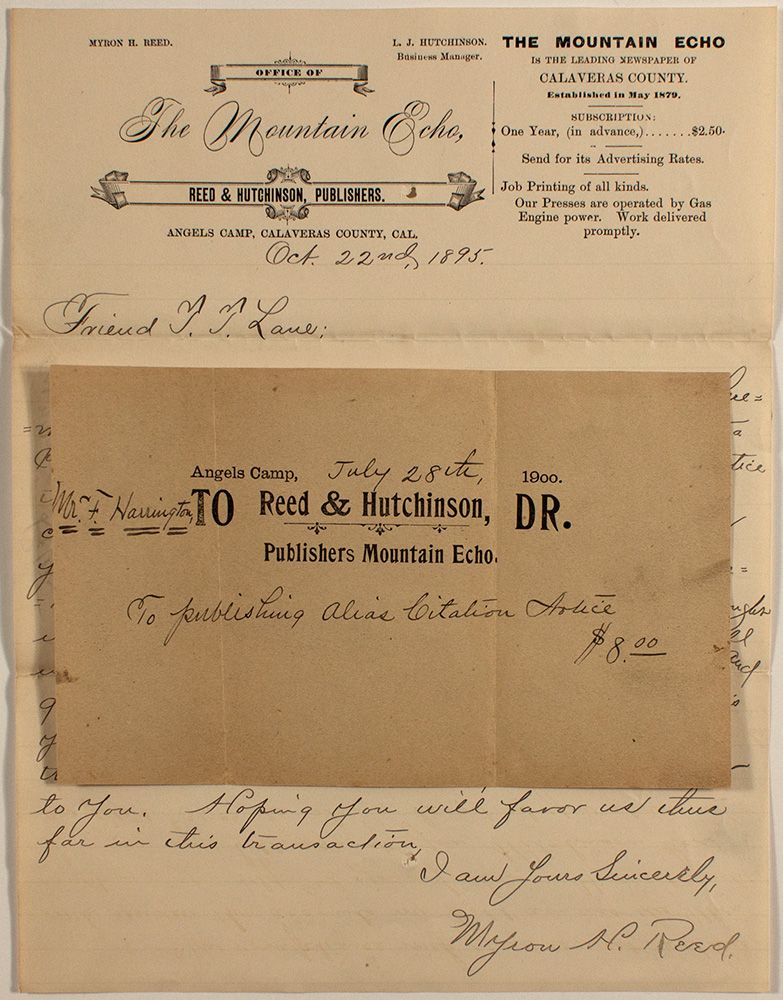 MYRON H. REED.
L. J. HUTCHINSON.
Business Manager.
OFFICE OF
The Mountain Echo,
REED & HUTCHINSON, PUBLISHERS.
ANGELS CAMP, CALAVERAS COUNTY, CAL.
THE MOUNTAIN ECHO
IS THE LEADING NEWSPAPER OF
CALAVERAS COUNTY.
Established in May 1879.
SUBSCRIPTION:
One Year, (in advance,).......$2.50.
Send for its Advertising Rates.
Job Printing of all kinds.
Our Presses are operated by Gas
Engine power. Work delivered
promptly.
Oct. 22nd, 1895.
Friend T. T. Lane:
Angels Camp, July 28th, 1900.
Mr. F. Harrington, TO Reed & Hutchinson, DR.
Publishers Mountain Echo.
To publishing Alias Citation Notice
$8.00
and
to You. Hoping you will favor us thus
far in this transaction,
I am Yours Sincerely,
Myron H. Reed.